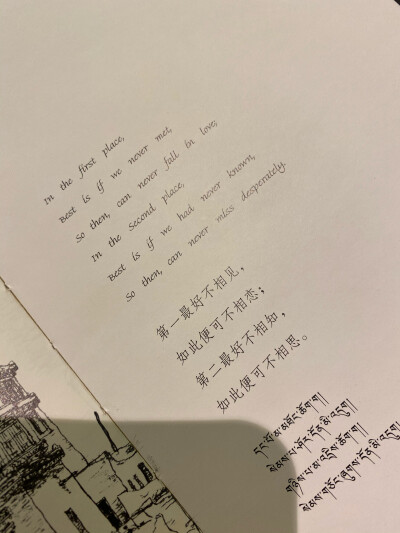 In the first place,
Best is if we never met,
So then, can never fall in love,
In the second place,
Best is if we had never known,
So then, can never miss desperately.
第一最好不相见，
如此便可不相恋；
第二最好不相知，
如此便可不相思。
དང་པོ་མ་མཐོང་ཆོག་ག།
སེམས་པ་ཤོར་དོན་མི་འདུག།
གཉིས་པ་མ་འདྲིས་ཆོག་ག།
སེམས་གཅོང་ཞུགས་དོན་མི་འདུག།